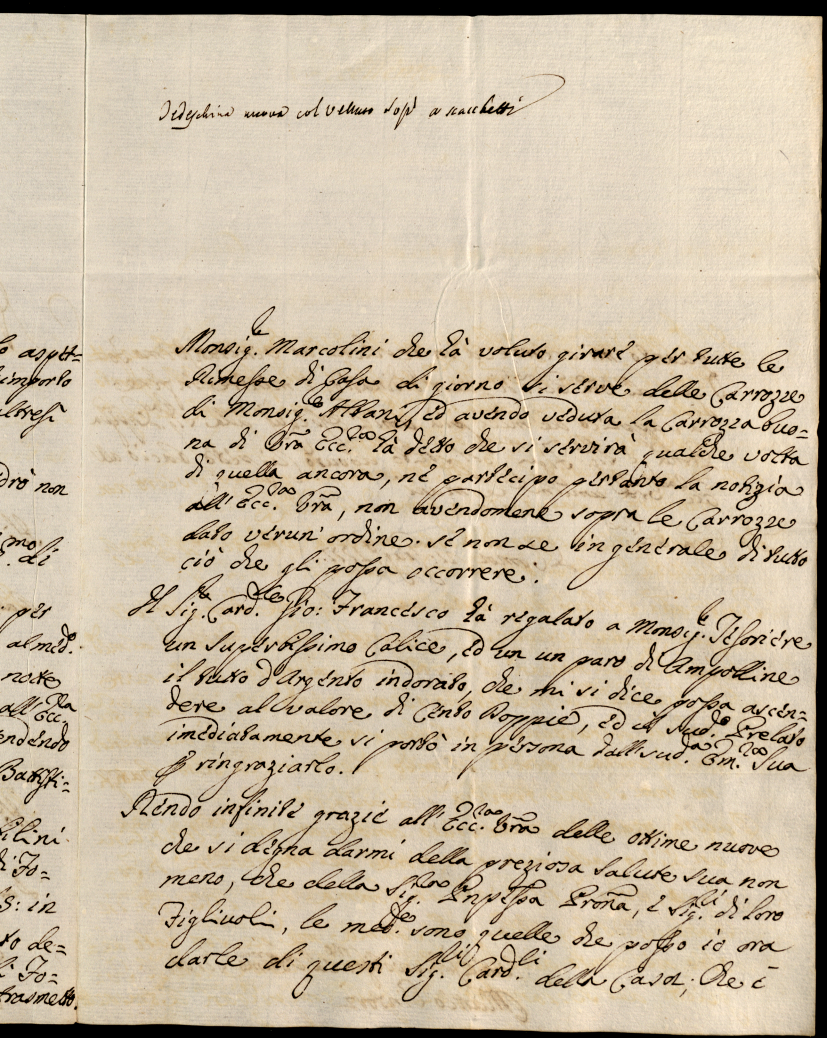 Tedeschina nuova col velluto sop.ª a scacchetti
Monsig.re Marcolini che hà voluto girare per tutte le
Rimesse di Casa di giorno si serve delle Carrozze
di Monsig.re Albani, ed avendo veduta la Carrozza buo=
na di Vrã Ecc.za hà detto che si servirà qualche volta
di quella ancora, nè partecipo pertanto la notizia
all'Ecc.za Vrã, non avendomene sopra le Carrozze
dato verun'ordine. se non se in generale di tutto
ciò che gli possa occorrere.
Il Sig.re Card.le Gio: Francesco hà regalato a Monsig.re Tesoriere
un superbissimo Calice, ed un un paro di Ampolline
il tutto d'Argento indorato, che mi si dice possa ascen=
dere al valore di Cento Doppie, ed il sud.o Prelato
imediatamente si portò in persona dall sud.a Em.za Sua
p ringraziarlo.
Rendo infinite grazie all'Ecc.za Vrã delle ottime nuove
che si degna darmi della preziosa salute sua non
meno, che della Sig.ra Pnpessa Prona, e Sig.li di loro
Figliuoli, le med.e sono quelle che posso io ora
darle di questi Sig.li Card.li della Casa, che è
o aspet=
importo
altresì
drò non
mo
di
per
al med.
notte
all'Ecc.za
endendo
Battisti=
ilini
di To=
S: in
to de=
li To=
trasmetto.